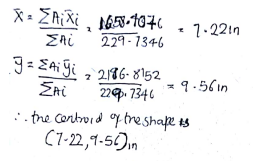 X̄ = ΣAiX̄i / ΣAi = 1658.7076 / 229.7346 = 7.22in
ȳ = ΣAiȳi / ΣAi = 2196.8152 / 229.7346 = 9.56in
∴ the centroid of the shape is
(7.22, 9.56)in